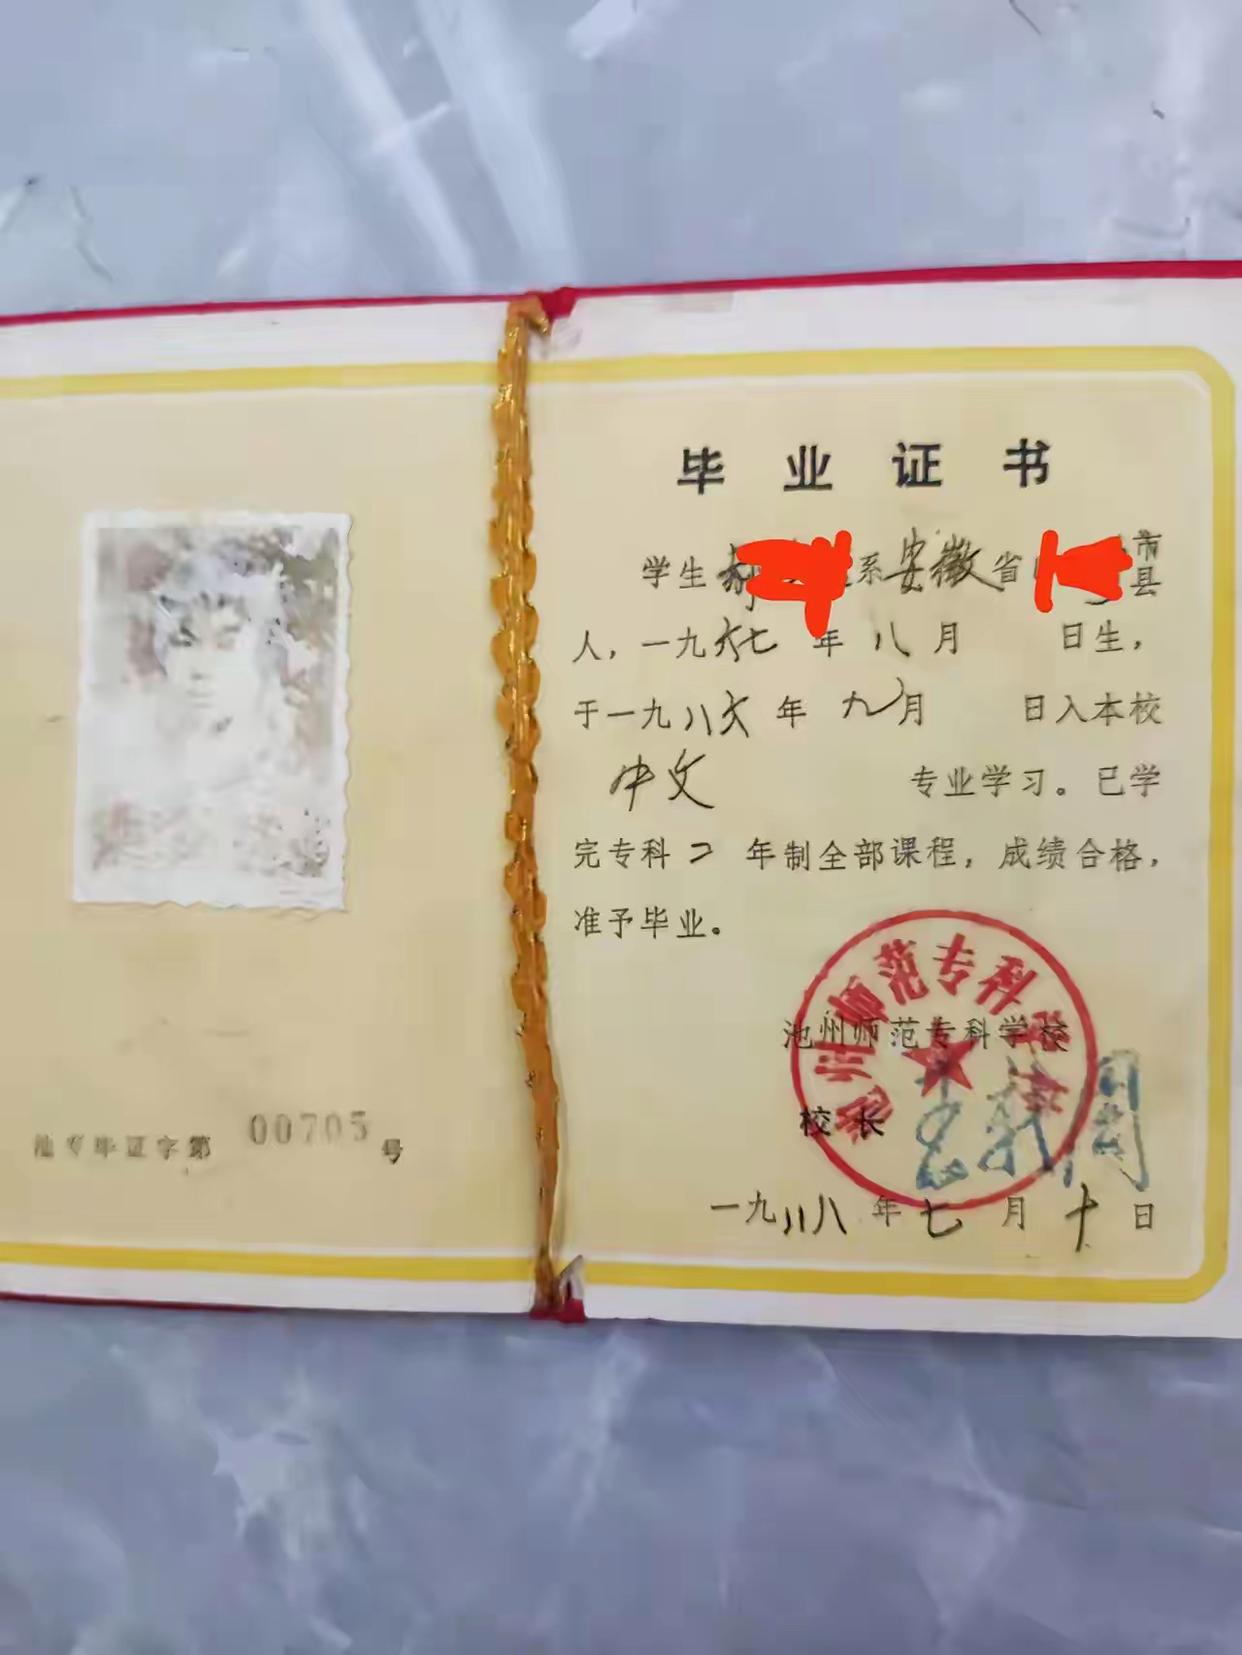 池专毕证字第 00705 号
毕业证书
学生 系安徽省 市县
人，一九六七年八月 日生，
于一九八六年九月 日入本校
中文 专业学习。已学
完专科二年制全部课程，成绩合格，
准予毕业。
池州师范专科学校
池州师范专科学校
校长
一九八八年七月十日